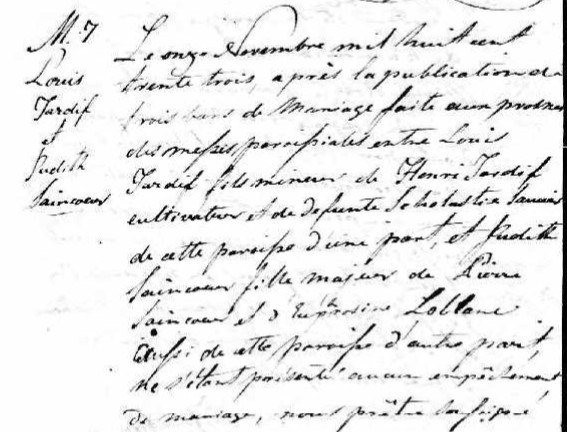 M. 7
Louis
Tardif
et
Judith
Saincoeur
Le onze Novembre mil huit cent
trente trois, après la publication de
trois bans de Mariage faite aux prones
des messes paroissiales entre Louis
Tardif fils mineur de Henri Tardif
cultivateur et de defunte Scholastie Saucier
de cette paroisse d'une part, et Judith
Saincoeur fille majeur de Pierre
Saincoeur et d'Euphrosine Leblanc
aussi de cette paroisse d'autre part,
ne s'étant présenté aucun empêchement
de mariage, nous prêtre soussigné